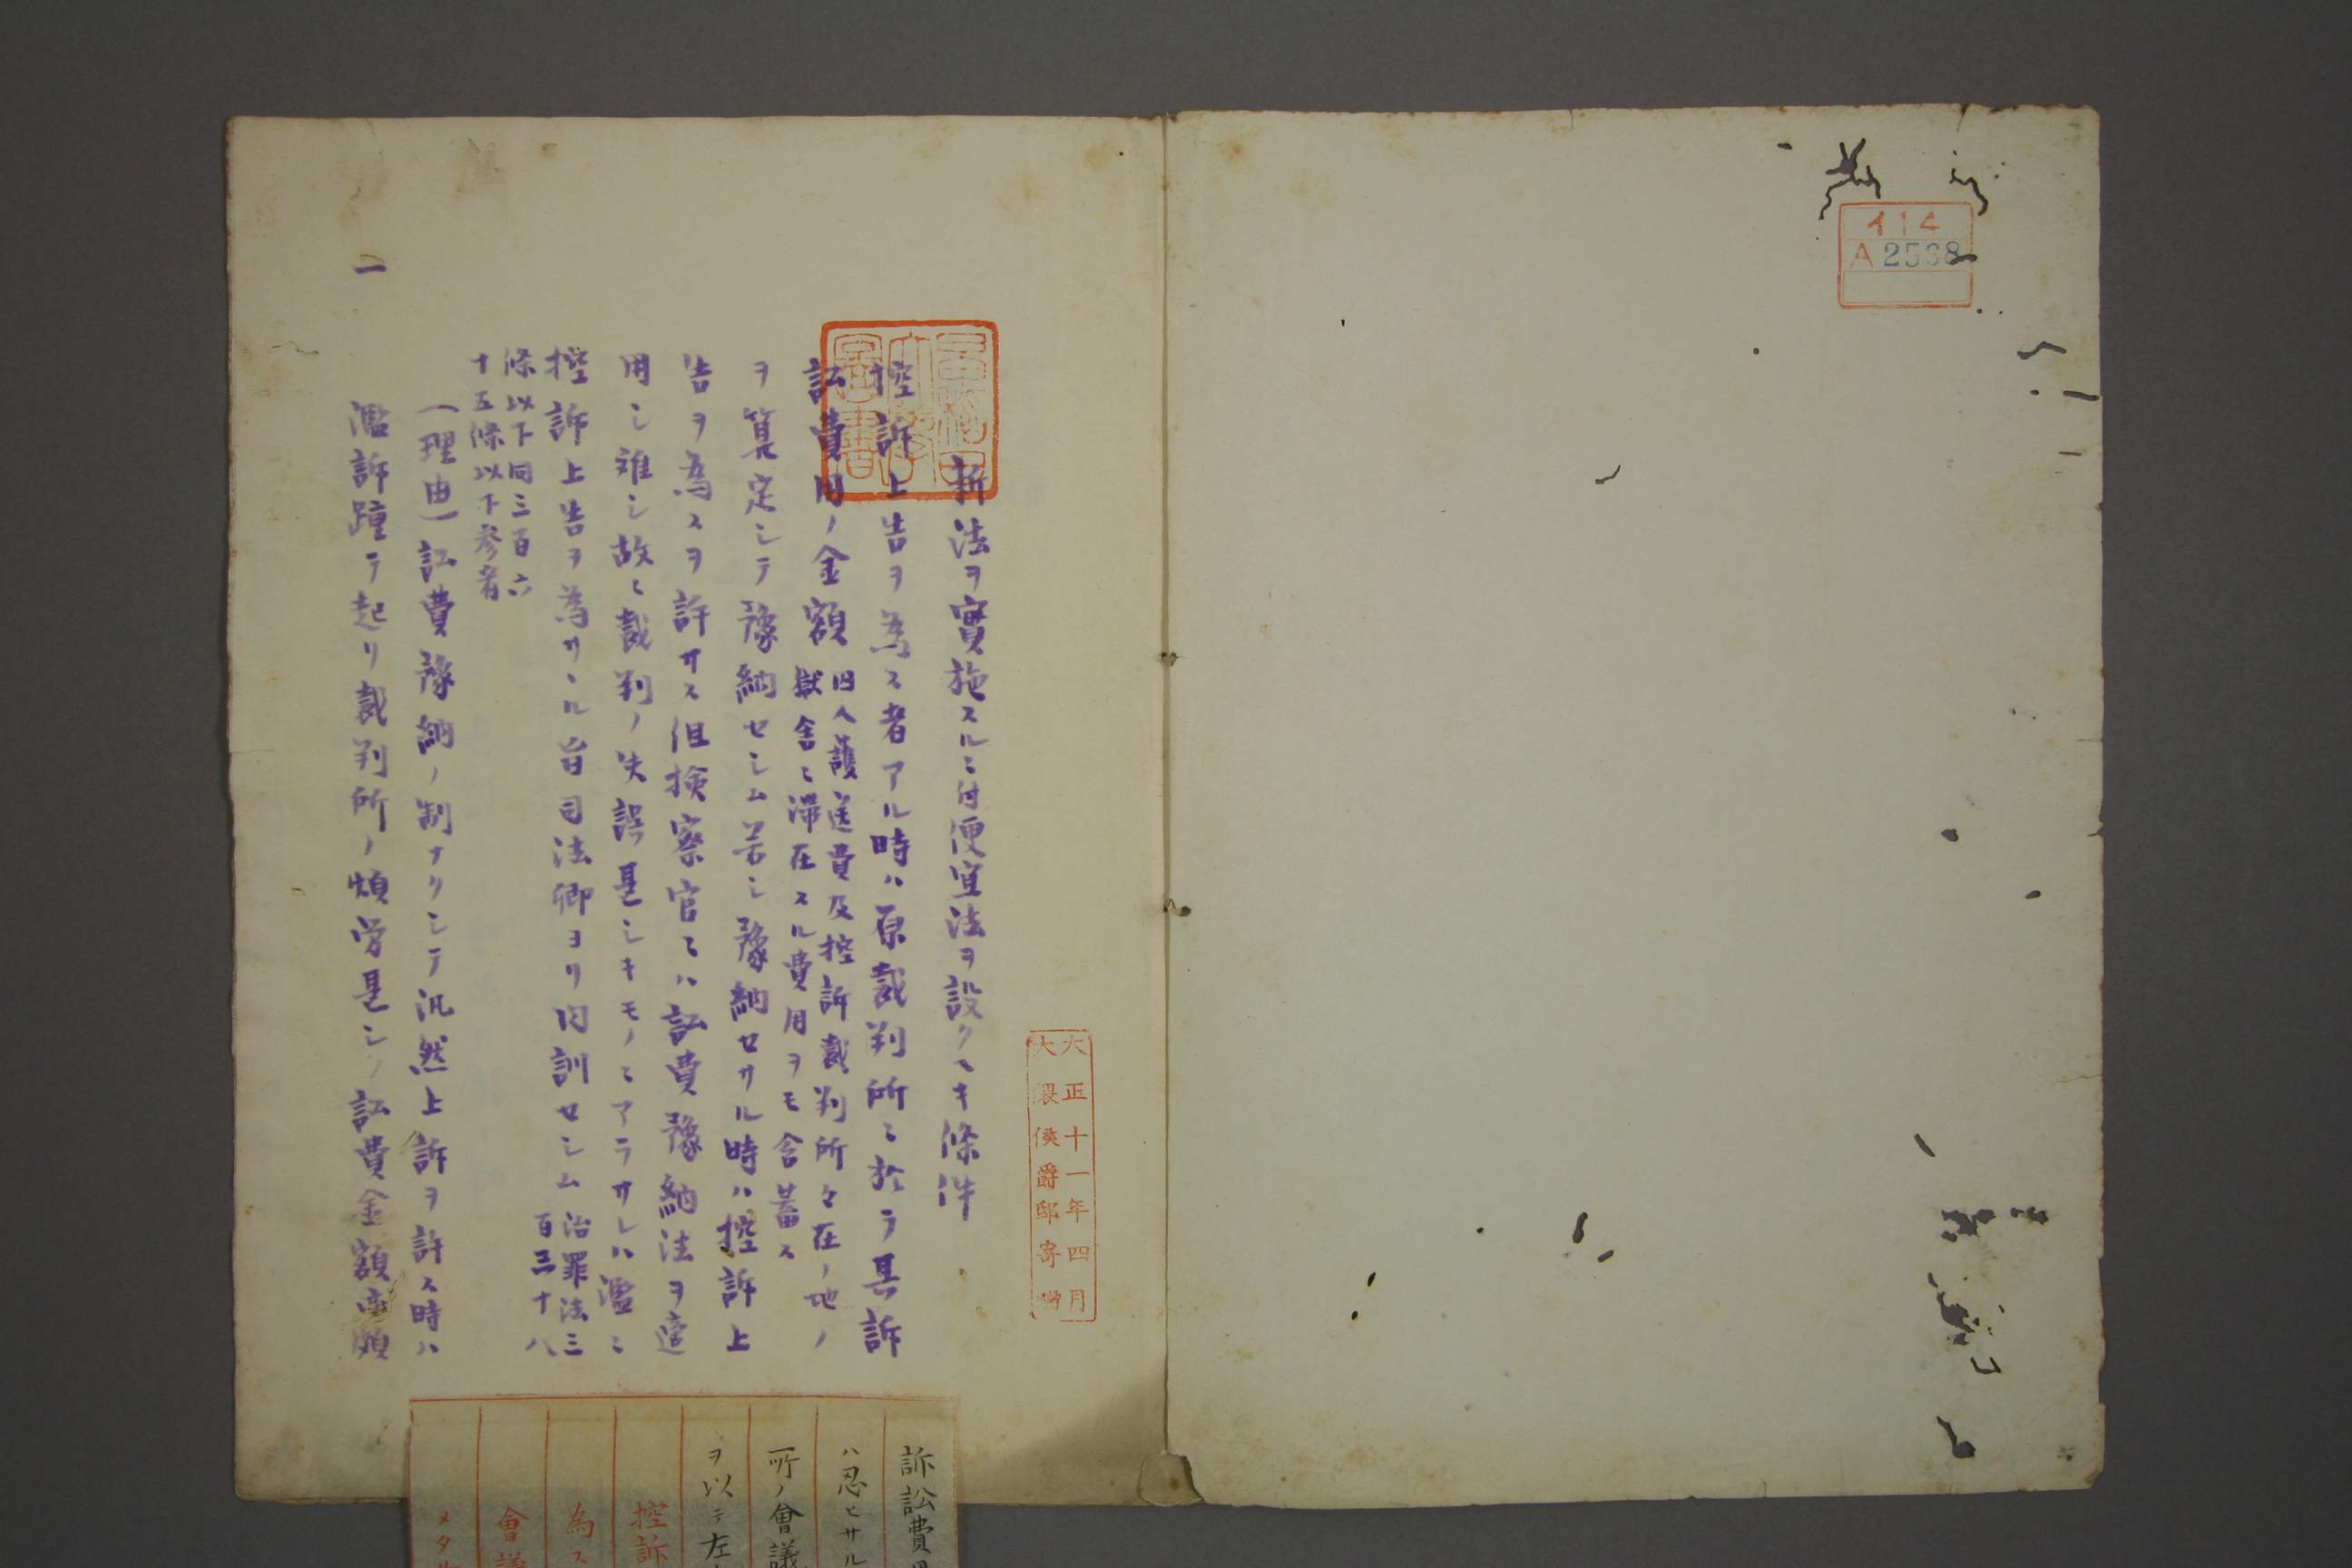 イ14
A2568
大正十一年四月
大隈侯爵邸寄贈
新法ヲ實施スルニ付便宜法ヲ設クヘキ條件
控訴上告ヲ為ス者アル時ハ原裁判所ニ於テ其訴
訟費用ノ金額
囚人護送費及控訴裁判所々在ノ地ノ
獄舎ニ滞在スル費用ヲモ含蓄ス
ヲ算定シテ豫納セシム若シ豫納セサル時ハ控訴上
告ヲ為スヲ許サス但検察官ニハ訟費豫納法ヲ適
用シ難シ故ニ裁判ノ失誤甚シキモノニアラサレハ濫ニ
控訴上告ヲ為サヽル旨司法卿ヨリ内訓セシム
治罪法三
百三十八
條以下同三百六
十五條以下参考
(理由)訟費豫納ノ制ナクシテ汎然上訴ヲ許ス時ハ
一
濫訴踵テ起リ裁判所ノ煩労甚シク訟費金額頗
訴訟費
ハ忍ヒサル
所ノ會議
ヲ以テ左
控訴
為ス
會議
メタ